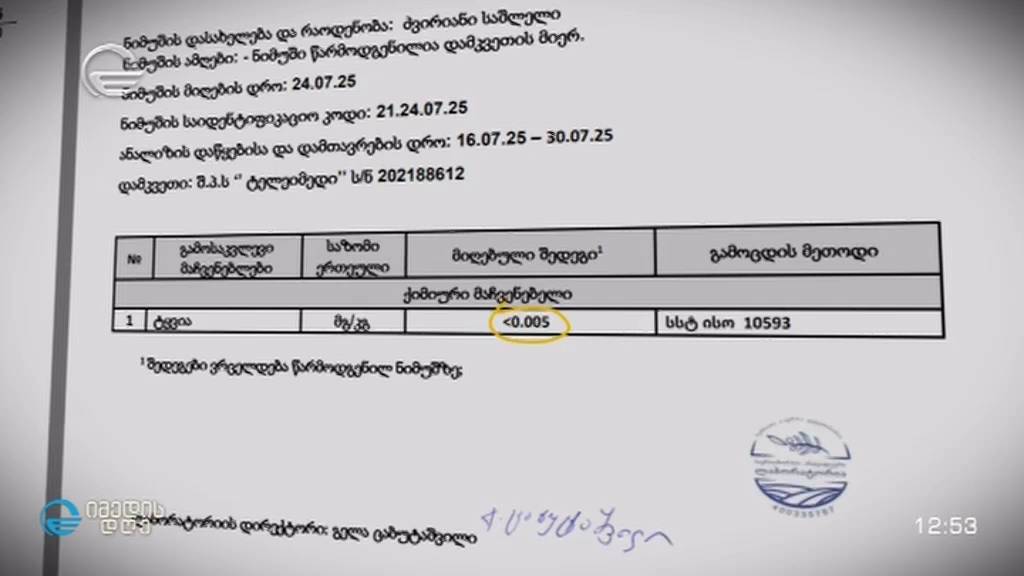 ნიმუშის დასახელება და რაოდენობა: ძვირიანი საშლელი
ნიმუშის აღება: - ნიმუში წარმოდგენილია დამკვეთის მიერ.
ნიმუშის მიღების დრო: 24.07.25
ნიმუშის საიდენტიფიკაციო კოდი: 21.24.07.25
ანალიზის დაწყებისა და დამთავრების დრო: 16.07.25 – 30.07.25
დამკვეთი: შ.პ.ს “ ტელეიმედი” ს/ნ 202188612
№ გამოსაკვლევი მაჩვენებლები საზომი ერთეული მიღებული შედეგი¹ გამოცდის მეთოდი
ქიმიური მაჩვენებელი
1 ტყვია მგ/კგ <0.005 სსტ ისო 10593
¹ შედეგები ვრცელდება წარმოდგენილ ნიმუშზე;
ლაბორატორია
400335787
იმედის
დღე
ლაბორატორიის დირექტორი: გელა ცაბუტაშვილი
12:53